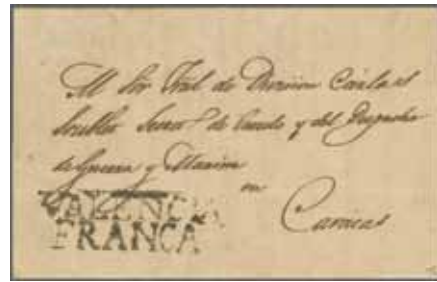 Al Sor Gral de Division Carlos
Soublette Secreto de Estado y del Despacho
de Guerra y Marina
en
Caracas
VALENCIA
FRANCA